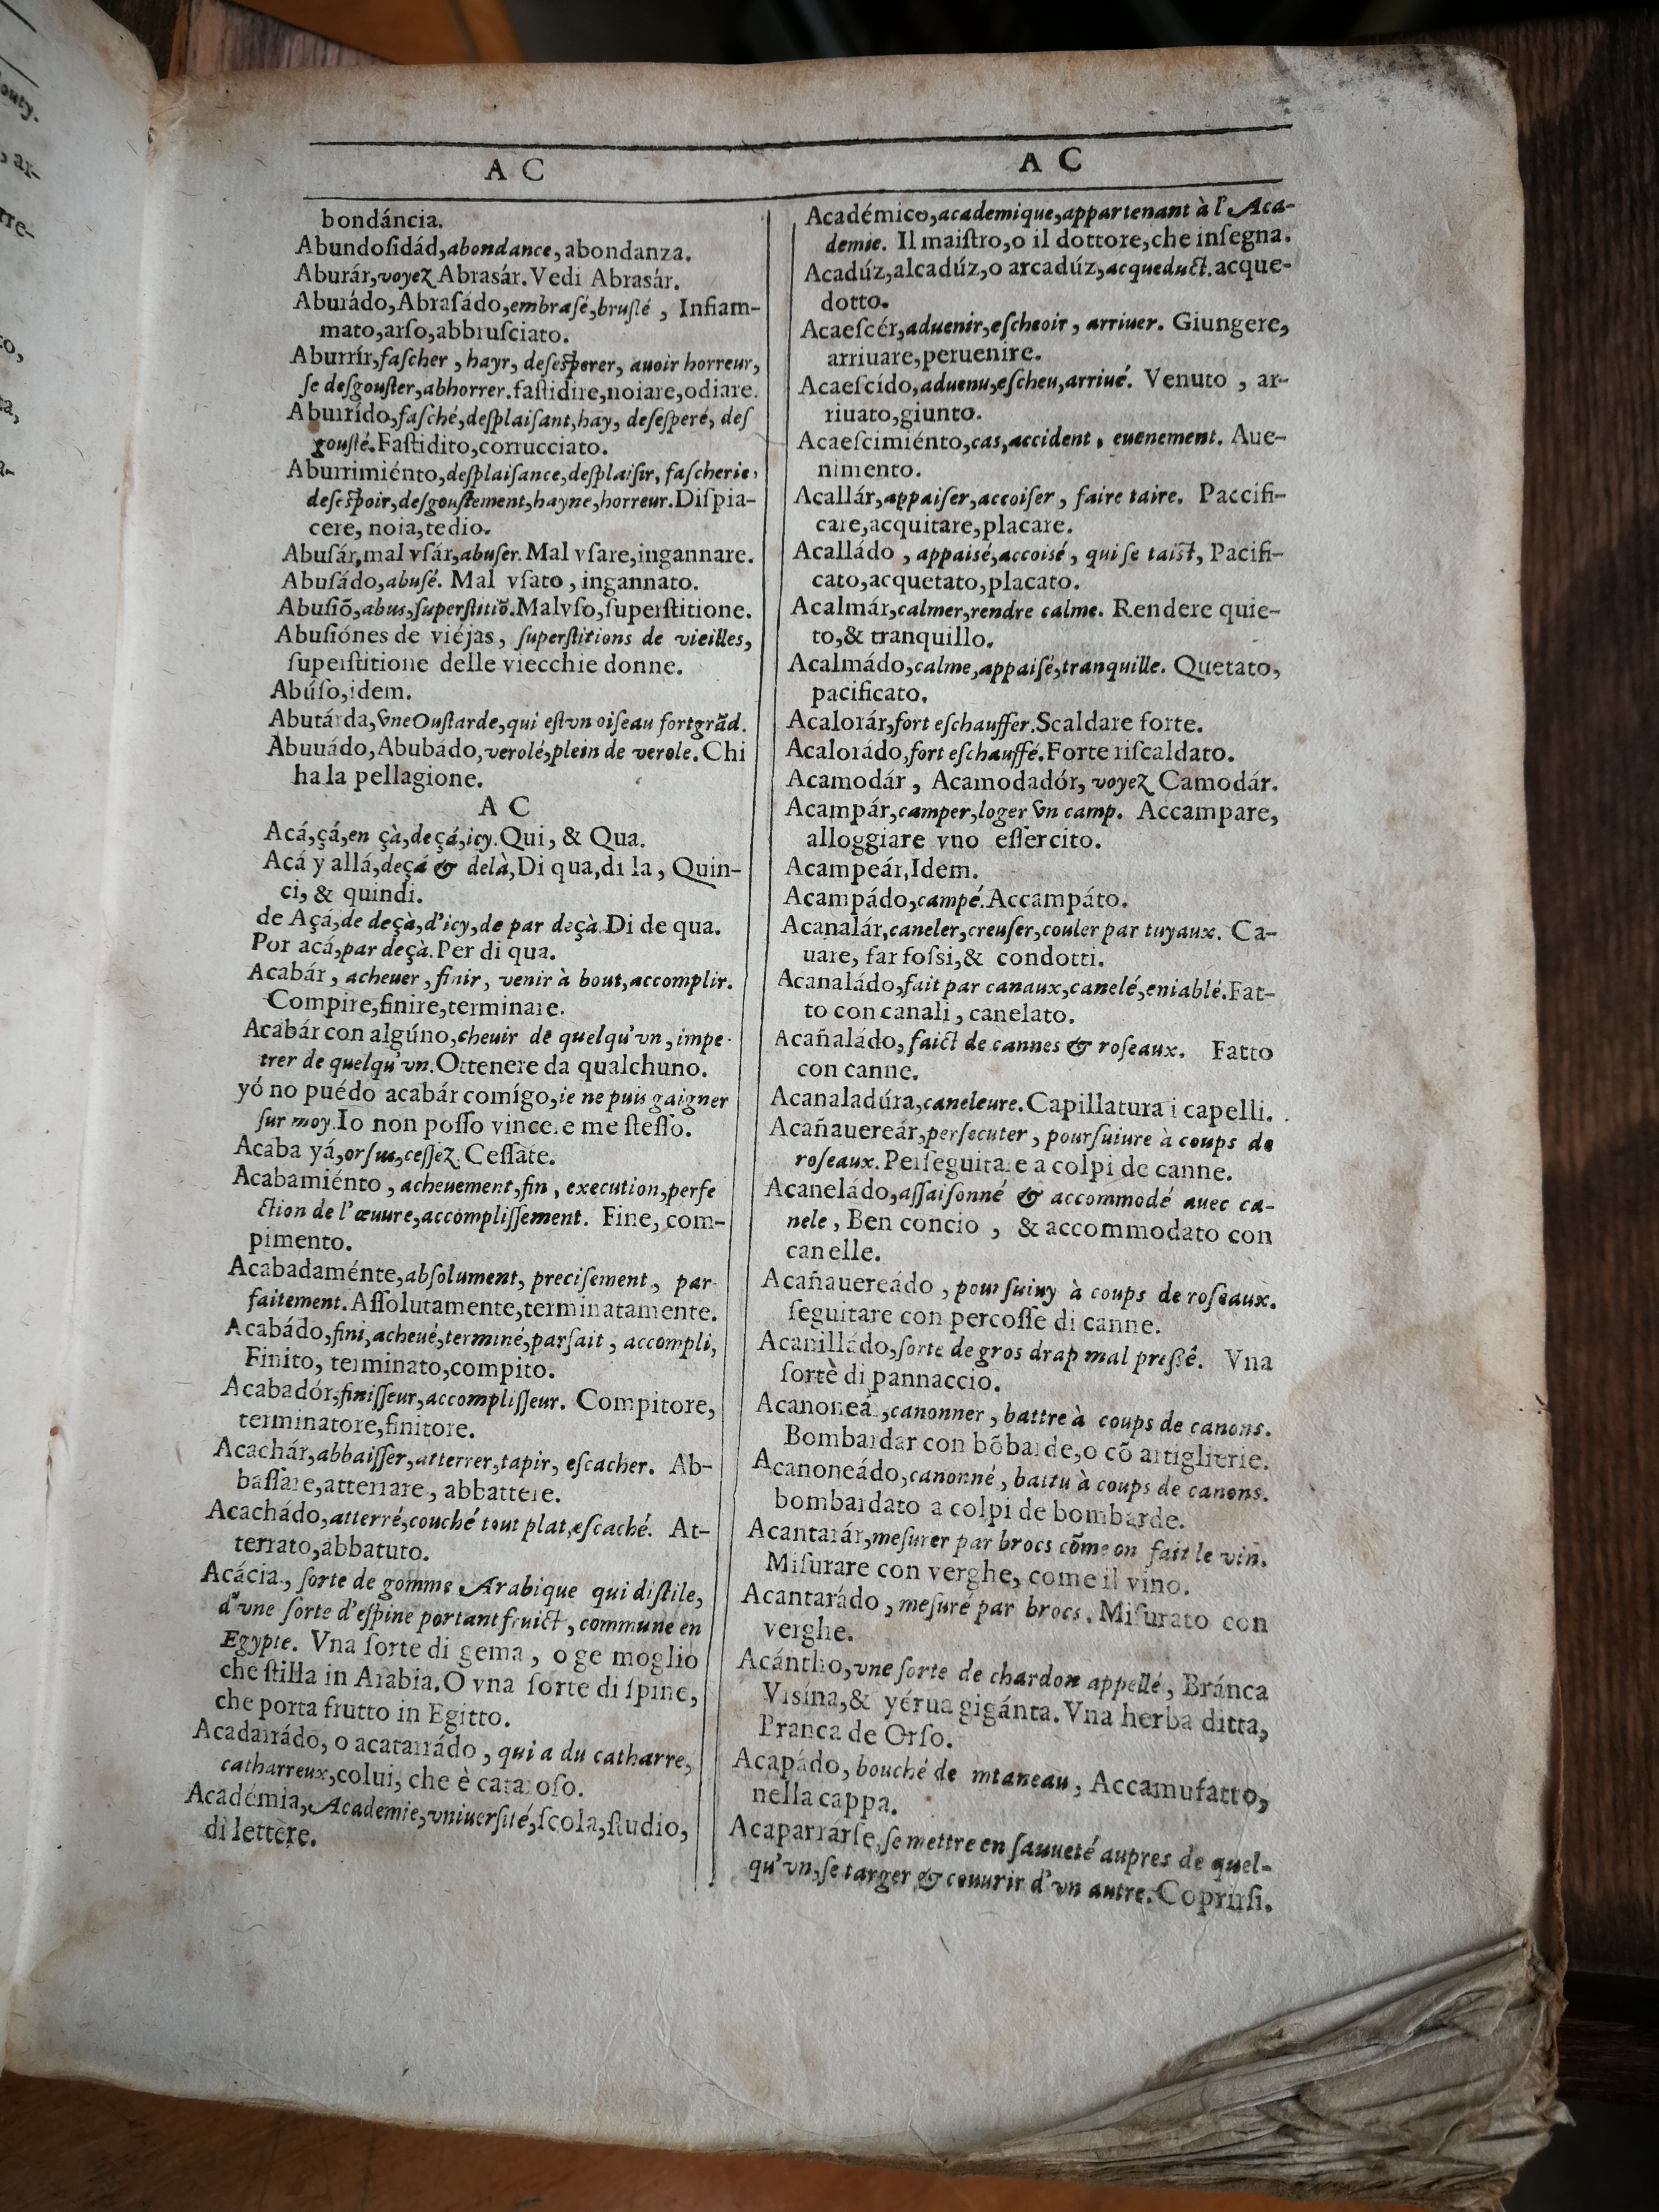 A C
bondáncia.
Abundoſidád,abondance,abondanza.
Aburár,voyez Abrasár.Vedi Abrasár.
Aburádo,Abraſádo,embraſé,bruſlé , Infiam-
mato,arſo,abbruſciato.
Aburrír,faſcher , hayr, deſesperer, auoir horreur,
ſe deſgouſter,abhorrer.faſtidire,noiare,odiare.
Aburrído,faſché,deſplaiſant,hay, deſeſperé, deſ
gouſté.Faſtidito,corrucciato.
Aburrimiénto,deſplaiſance,deſplaiſir, faſcherie,
deſeſpoir,deſgouſtement,hayne,horreur.Diſpia-
cere, noia,tedio.
Abuſár,mal vſár,abuſer.Mal vſare,ingannare.
Abuſádo,abuſé. Mal vſato , ingannato.
Abuſiõ,abus,ſuperſtitiõ.Malvſo,ſuperſtitione.
Abuſiónes de viéjas, ſuperſtitions de vieilles,
ſuperſtitione delle viecchie donne.
Abúſo,idem.
Abutárda,vneOuſtarde,qui eſt vn oiſeau fortgrãd.
Abuuádo,Abubádo,verolé,plein de verole.Chi
ha la pellagione.
A C
Acá,çá,en çà,deçá,icy.Qui, & Qua.
Acá y allá,deçá & delà,Di qua,di la , Quin-
ci, & quindi.
de Açá,de deçà,d'icy,de par deçà.Di de qua.
Por acá,par deçà.Per di qua.
Acabár , acheuer , finir , venir à bout,accomplir.
Compire,finire,terminare.
Acabár con algúno,cheuir de quelqu'vn , impe-
trer de quelqu'vn.Ottenere da qualchuno.
yó no puédo acabár comígo,ie ne puis gaigner
ſur moy.Io non poſſo vincere me ſteſſo.
Acaba yá,orſus,ceſſez.Ceſſate.
Acabamiénto , acheuement,fin , execution,perfe
ction de l'œuure,accompliſſement. Fine, com-
pimento.
Acabadaménte,abſolument, preciſement , par-
faitement.Aſſolutamente,terminatamente.
Acabádo,fini,acheué,terminé,parfait , accompli,
Finito, terminato,compito.
Acabadór,finiſſeur,accompliſſeur. Compitore,
terminatore,finitore.
Acachár,abbaiſſer,atterrer,tapir, eſcacher. Ab-
baſſare,atterrare , abbattere.
Acachádo,atterré,couché tout plat,eſcaché. At-
terrato,abbatuto.
Acácia , ſorte de gomme Arabique qui diſtile,
d'vne ſorte d'eſpine portant fruict , commune en
Egypte. Vna ſorte di gema , o ge moglio
che ſtilla in Arabia.O vna ſorte di ſpine,
che porta frutto in Egitto.
Acadarrádo, o acatarrádo , qui a du catharre,
catharreux,colui, che è cataroſo.
Académia, Academie,vniuerſité,ſcola,ſtudio,
di lettere.
A C
Académico,academique,appartenant à l'Aca-
demie. Il maiſtro,o il dottore,che inſegna.
Acadúz,alcadúz,o arcadúz,acqueduct.acque-
dotto.
Acaeſcér,aduenir,eſcheoir , arriuer. Giungere,
arriuare,peruenire.
Acaeſcído,aduenu,eſcheu,arriué. Venuto , ar-
riuato,giunto.
Acaeſcimiénto,cas,accident , euenement. Aue-
nimento.
Acallár,appaiſer,accoiſer , faire taire. Paccifi-
care,acquitare,placare.
Acalládo , appaisé,accoisé , qui ſe taiſt, Pacifi-
cato,acquetato,placato.
Acalmár,calmer,rendre calme. Rendere quie-
to,& tranquillo.
Acalmádo,calme,appaiſé,tranquille. Quetato,
pacificato.
Acalorár,fort eſchauffer.Scaldare forte.
Acalorádo,fort eſchauffé.Forte riſcaldato.
Acamodár , Acamodadór, voyez Camodár.
Acampár,camper,loger vn camp. Accampare,
alloggiare vno eſſercito.
Acampeár,Idem.
Acampádo,campé.Accampáto.
Acanalár,caneler,creuſer,couler par tuyaux. Ca-
uare, far foſſi,& condotti.
Acanaládo,fait par canaux,canelé,eniablé.Fat-
to con canali , canelato.
Acañaládo, faict de cannes & roſeaux. Fatto
con canne.
Acanaladúra,caneleure.Capillatura i capelli.
Acañauereár,perſecuter , pourſuiure à coups de
roſeaux.Perſeguitare a colpi de canne.
Acaneládo,aſſaiſonné & accommodé auec ca-
nele , Ben concio , & accommodato con
canelle.
Acañauereádo , pourſuiuy à coups de roſeaux.
ſeguitare con percoſſe di canne.
Acanilládo,ſorte de gros drap mal preſſé. Vna
ſortè di pannaccio.
Acanoneá ,canonner , battre à coups de canons.
Bombardar con bõbarde,o cõ artiglierie.
Acanoneádo,canonné , battu à coups de canons.
bombardato a colpi de bombarde.
Acantarár,meſurer par brocs cõme on fait le vin.
Miſurare con verghe, come il vino.
Acantarádo , meſuré par brocs. Miſurato con
verghe.
Acántho,vne ſorte de chardon appellé , Bránca
Vrsína,& yérua gigánta.Vna herba ditta,
Pranca de Orſo.
Acapádo, bouché de mtaneau , Accamufatto,
nella cappa.
Acaparrárſe,ſe mettre en ſauueté aupres de quel-
qu'vn,ſe targer & couurir d'vn autre.Coprirſi.